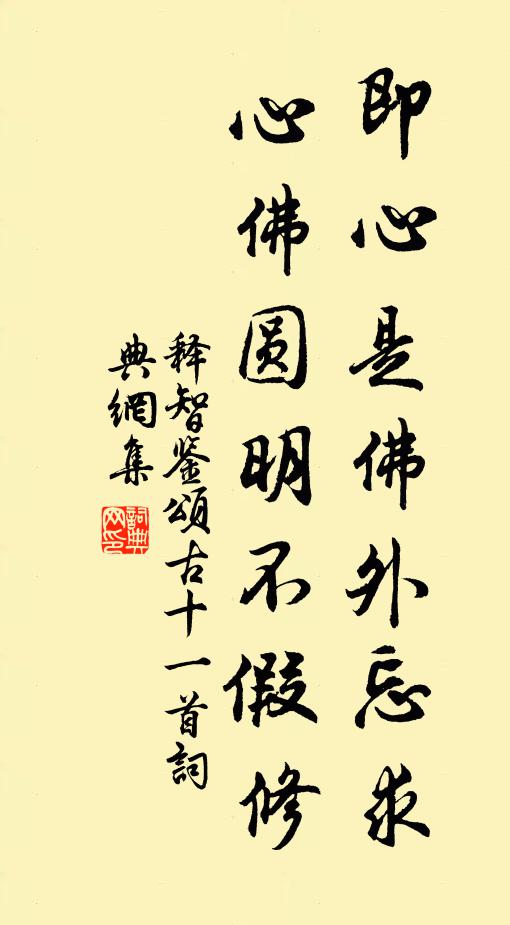 即心是佛外忘求
心佛圆明不假修
释智鉴颂古十一首詞
典網集
詞典網印